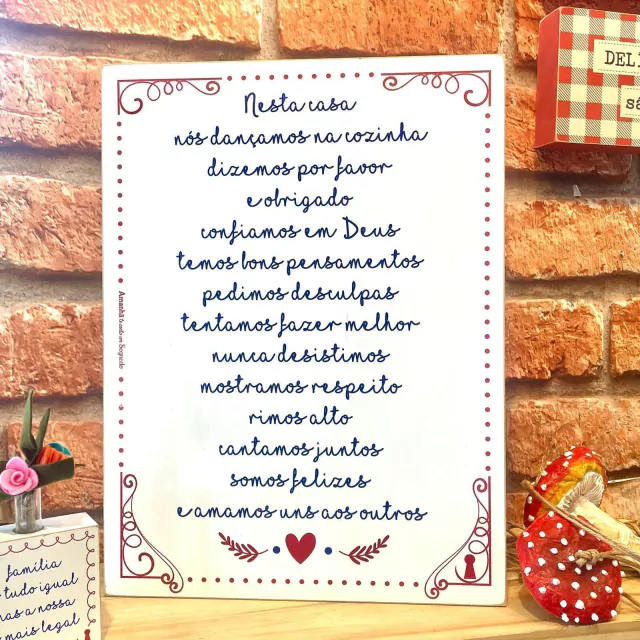 Nesta casa
nós dançamos na cozinha
dizemos por favor
e obrigado
confiamos em Deus
temos bons pensamentos
pedimos desculpas
tentamos fazer melhor
nunca desistimos
mostramos respeito
rimos alto
cantamos juntos
somos felizes
e amamos uns aos outros
Amanhã te conto um Segredo
DELI
sá
família
tudo igual
as a nossa
mais legal